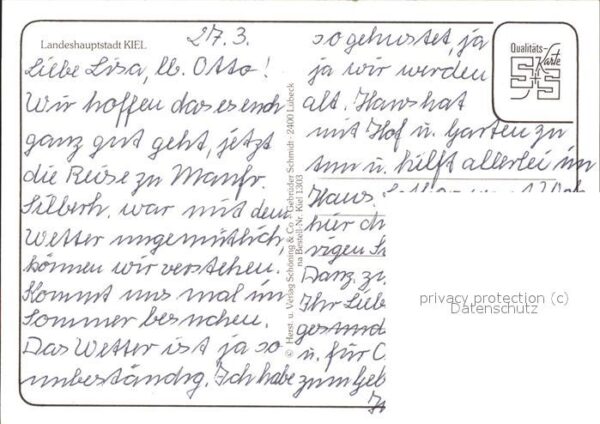 Landeshauptstadt KIEL
27.3.
Liebe Lisa, lb. Otto!
Wir hoffen das es euch
ganz gut geht, jetzt
die Reise zu Manfr.
Silberh. war mit dem
Wetter ungemütlich,
können wir verstehen.
Kommt uns mal im
Sommer besuchen.
Das Wetter ist ja so
unbeständig. Ich habe
© Herst. u. Verlag Schöning & Co - Gebrüder Schmidt · 2400 Lübeck
na Bestell-Nr. Kiel 1303
so gehustet, ja
ja wir werden
alt. Hans hat
mit Hof u. Garten zu
tun u. hilft allerlei im
Haus.
hier
vigen
Danz. zu
Ihr Lieb
gesund
u. für
zum Geb
Qualitäts-Karte
S+S
privacy protection (c)
Datenschutz